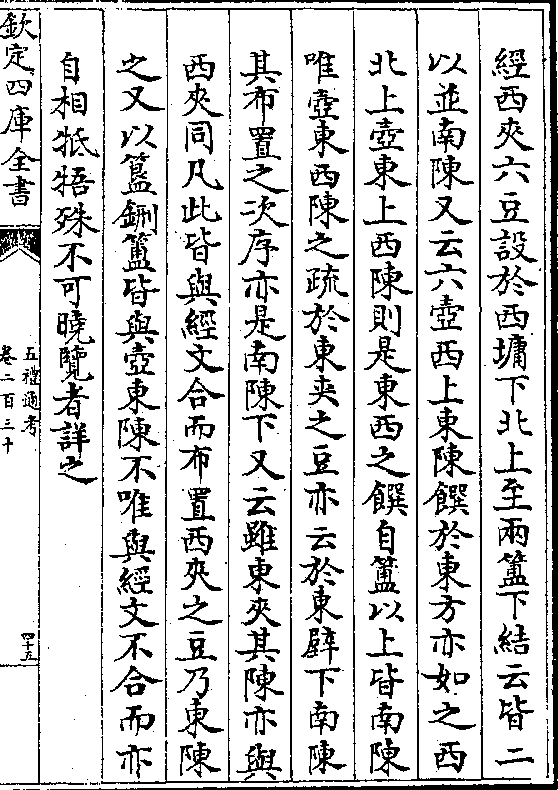 經西夾六豆設於西墉下北上至兩簠下結云皆二
以並南陳又云六壺西上東陳饌於東方亦如之西
北上壺東上西陳則是東西之饌自簠以上皆南陳
唯壺東西陳之疏於東夾之豆亦云於東壁下南陳
其布置之次序亦是南陳下又云雖東夾其陳亦與
西夾同凡此皆與經文合而布置西夾之豆乃東陳
之又以簋鉶簠皆與壺東陳不唯與經文不合而亦
自相牴牾殊不可曉覽者詳之
欽定四庫全書
五禮通考
卷二百三十
四十五